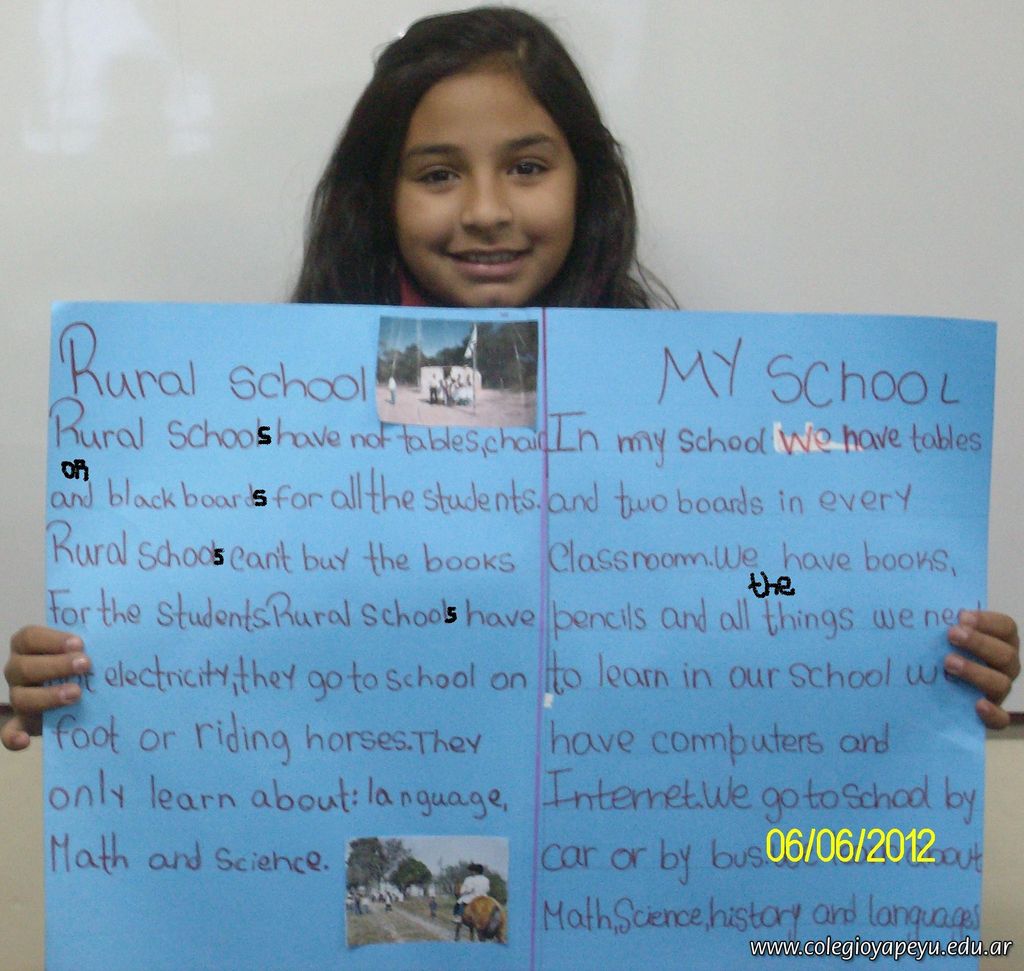 Rural School
Rural Schools have not tables, chair
or
and blackboards for all the students.
Rural Schools can't buy the books
For the students. Rural Schools have
electricity, they go to school on
foot or riding horses. They
only learn about: language,
Math and Science.
MY SCHOOL
In my school we have tables
and two boards in every
Classroom. We have books,
the
pencils and all things we nee
to learn in our school we
have commputers and
Internet. We go to School by
car or by bus. about
Math, Science, history and languages
06/06/2012
www.colegioyapeyu.edu.ar